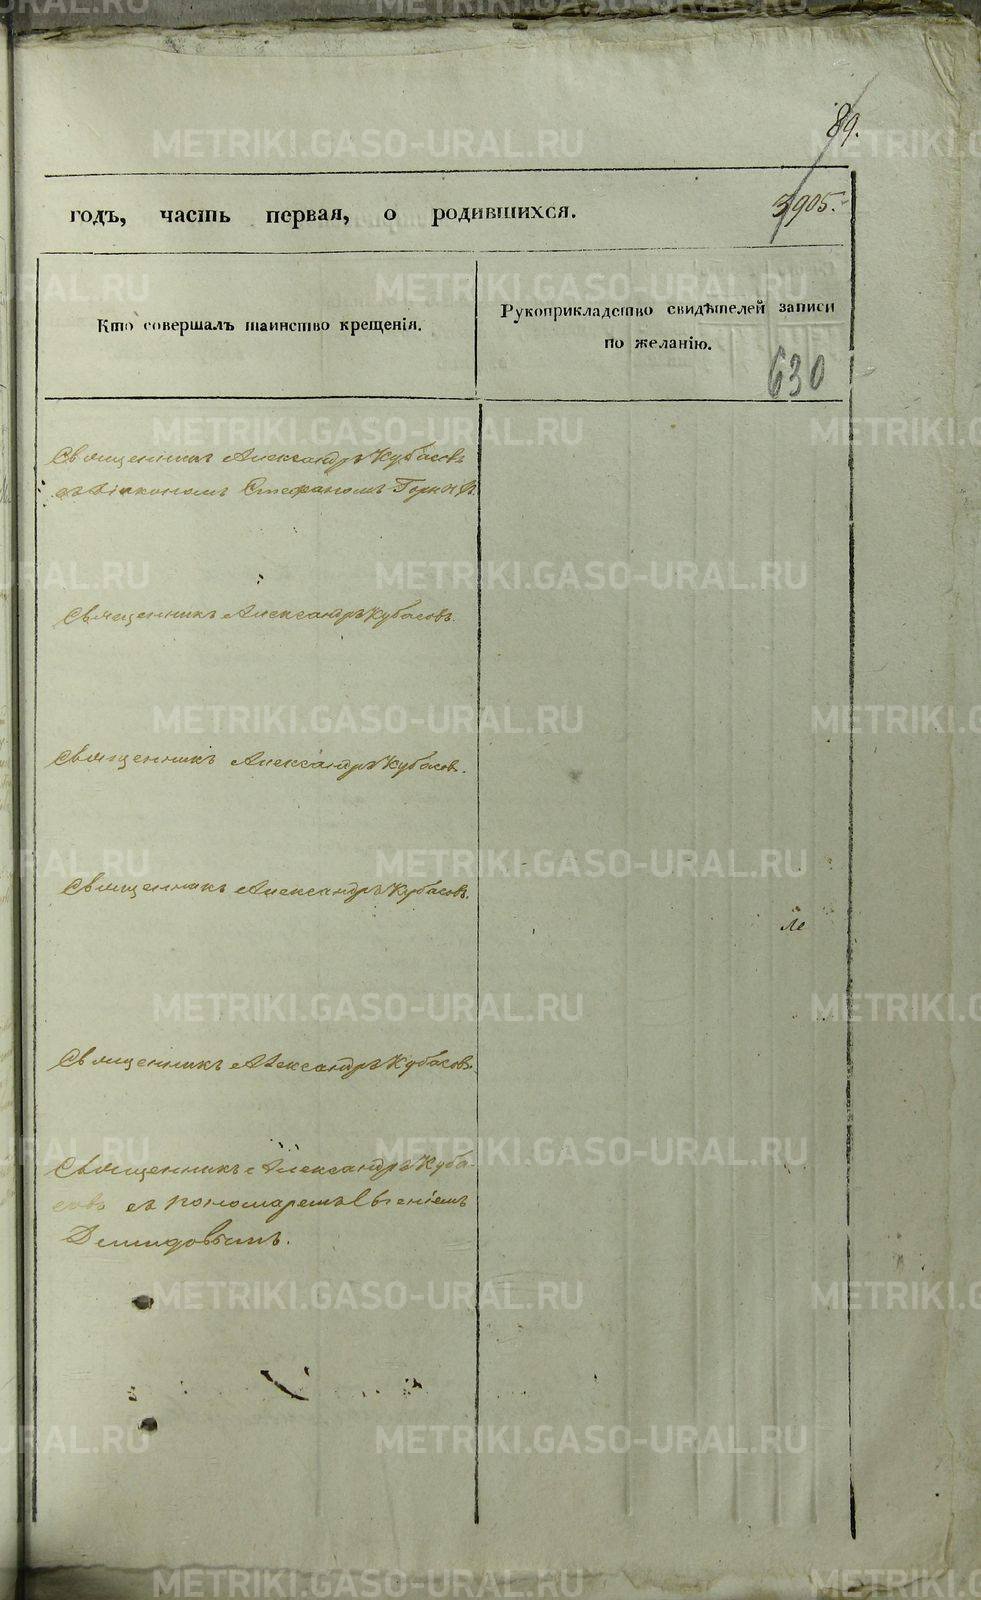 89.
3905.
годъ, часть первая, о родившихся.
Кто совершалъ таинство крещенія.
Рукоприкладство свидѣтелей записи
по желанію.
630
Священникъ Александръ Кубасовъ
съ діакономъ Стефаномъ
Священникъ Александръ Кубасовъ.
Священникъ Александръ Кубасов.
Священникъ Александръ Кубасовъ.
Священникъ Александръ Кубасовъ.
Священникъ Александръ Куба-
совъ съ пономаремъ Евгеніемъ
Демидовымъ.
METRIKI.GASO-URAL.RU